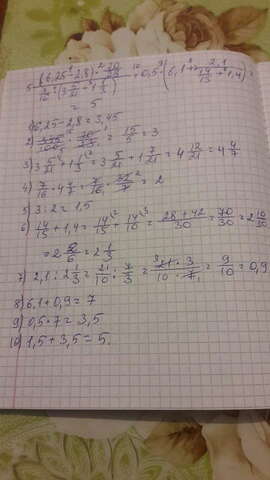 (6,25-2,8)·20/23
7/16·(3 5/21+1 1/3) + 0,5·(6,1+ 2,1/(14/15+1,4)) =
= 5
1) 6,25-2,8=3,45
= 15/5 = 3
3) 3 5/21+1 1/3=3 5/21+1 7/21=4 12/21=4 4/7
4) 7/16·4 4/7=7/16·32/7=2
5) 3:2=1,5
6) 14/15+1,4=14/15+14/10=28+42/30=70/30=2 10/30
=2 2/6=2 1/3
7) 2,1:2 1/3=21/10:7/3=21·3/10·7=9/10=0,9
8) 6,1+0,9=7
9) 0,5·7=3,5
10) 1,5+3,5=5.